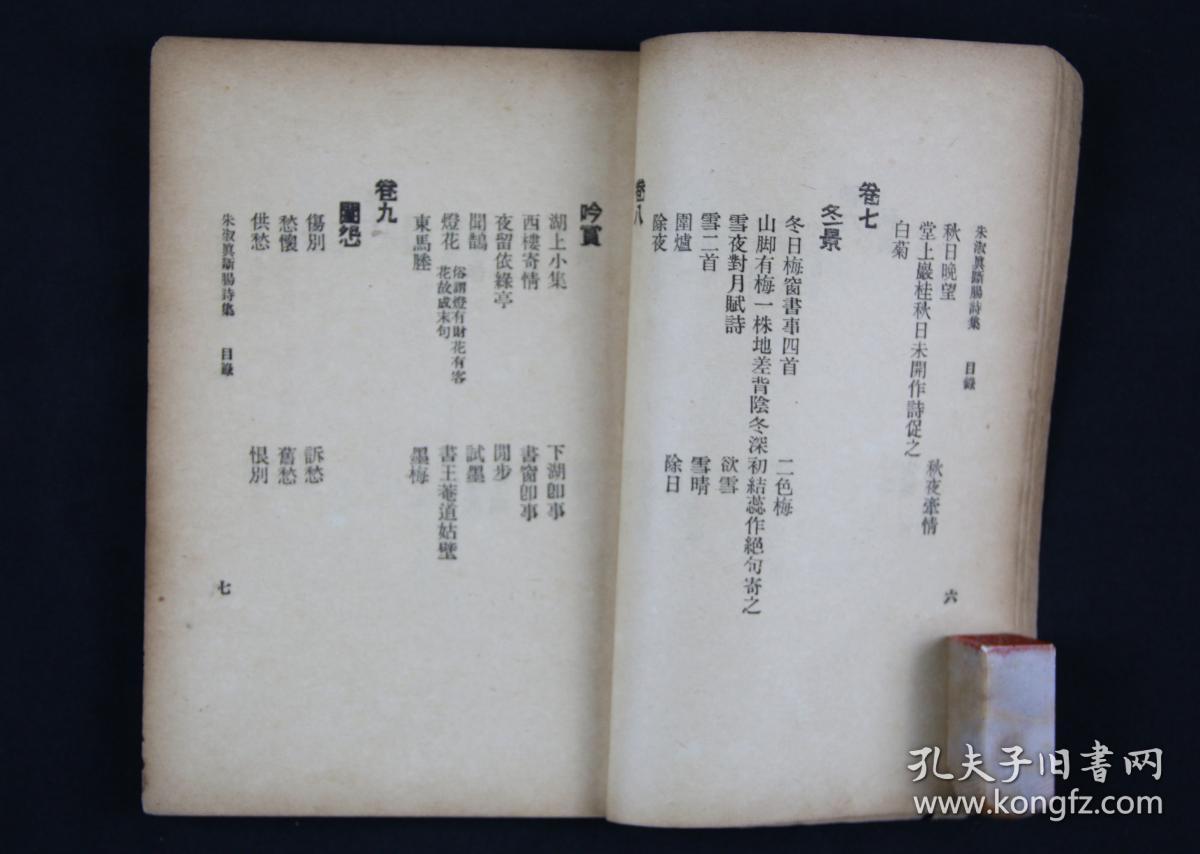 朱淑眞斷腸詩集　目錄
六
秋日晚望
秋夜牽情
堂上巖桂秋日未開作詩促之
白菊
卷七
冬景
冬日梅窗書事四首
二色梅
山脚有梅一株地差背陰冬深初結蕊作絕句寄之
雪夜對月賦詩
欲雪
雪二首
雪晴
圍爐
除日
除夜
卷八
吟賞
湖上小集
下湖卽事
西樓寄情
書窗卽事
夜留依綠亭
閒步
聞鵲
試墨
燈花
俗謂燈有財花有客
花故成末句
書王菴道姑壁
東馬塍
墨梅
卷九
閨怨
傷別
訴愁
愁懷
舊愁
供愁
恨別
朱淑眞斷腸詩集　目錄
七
孔夫子旧书网
www.kongfz.com